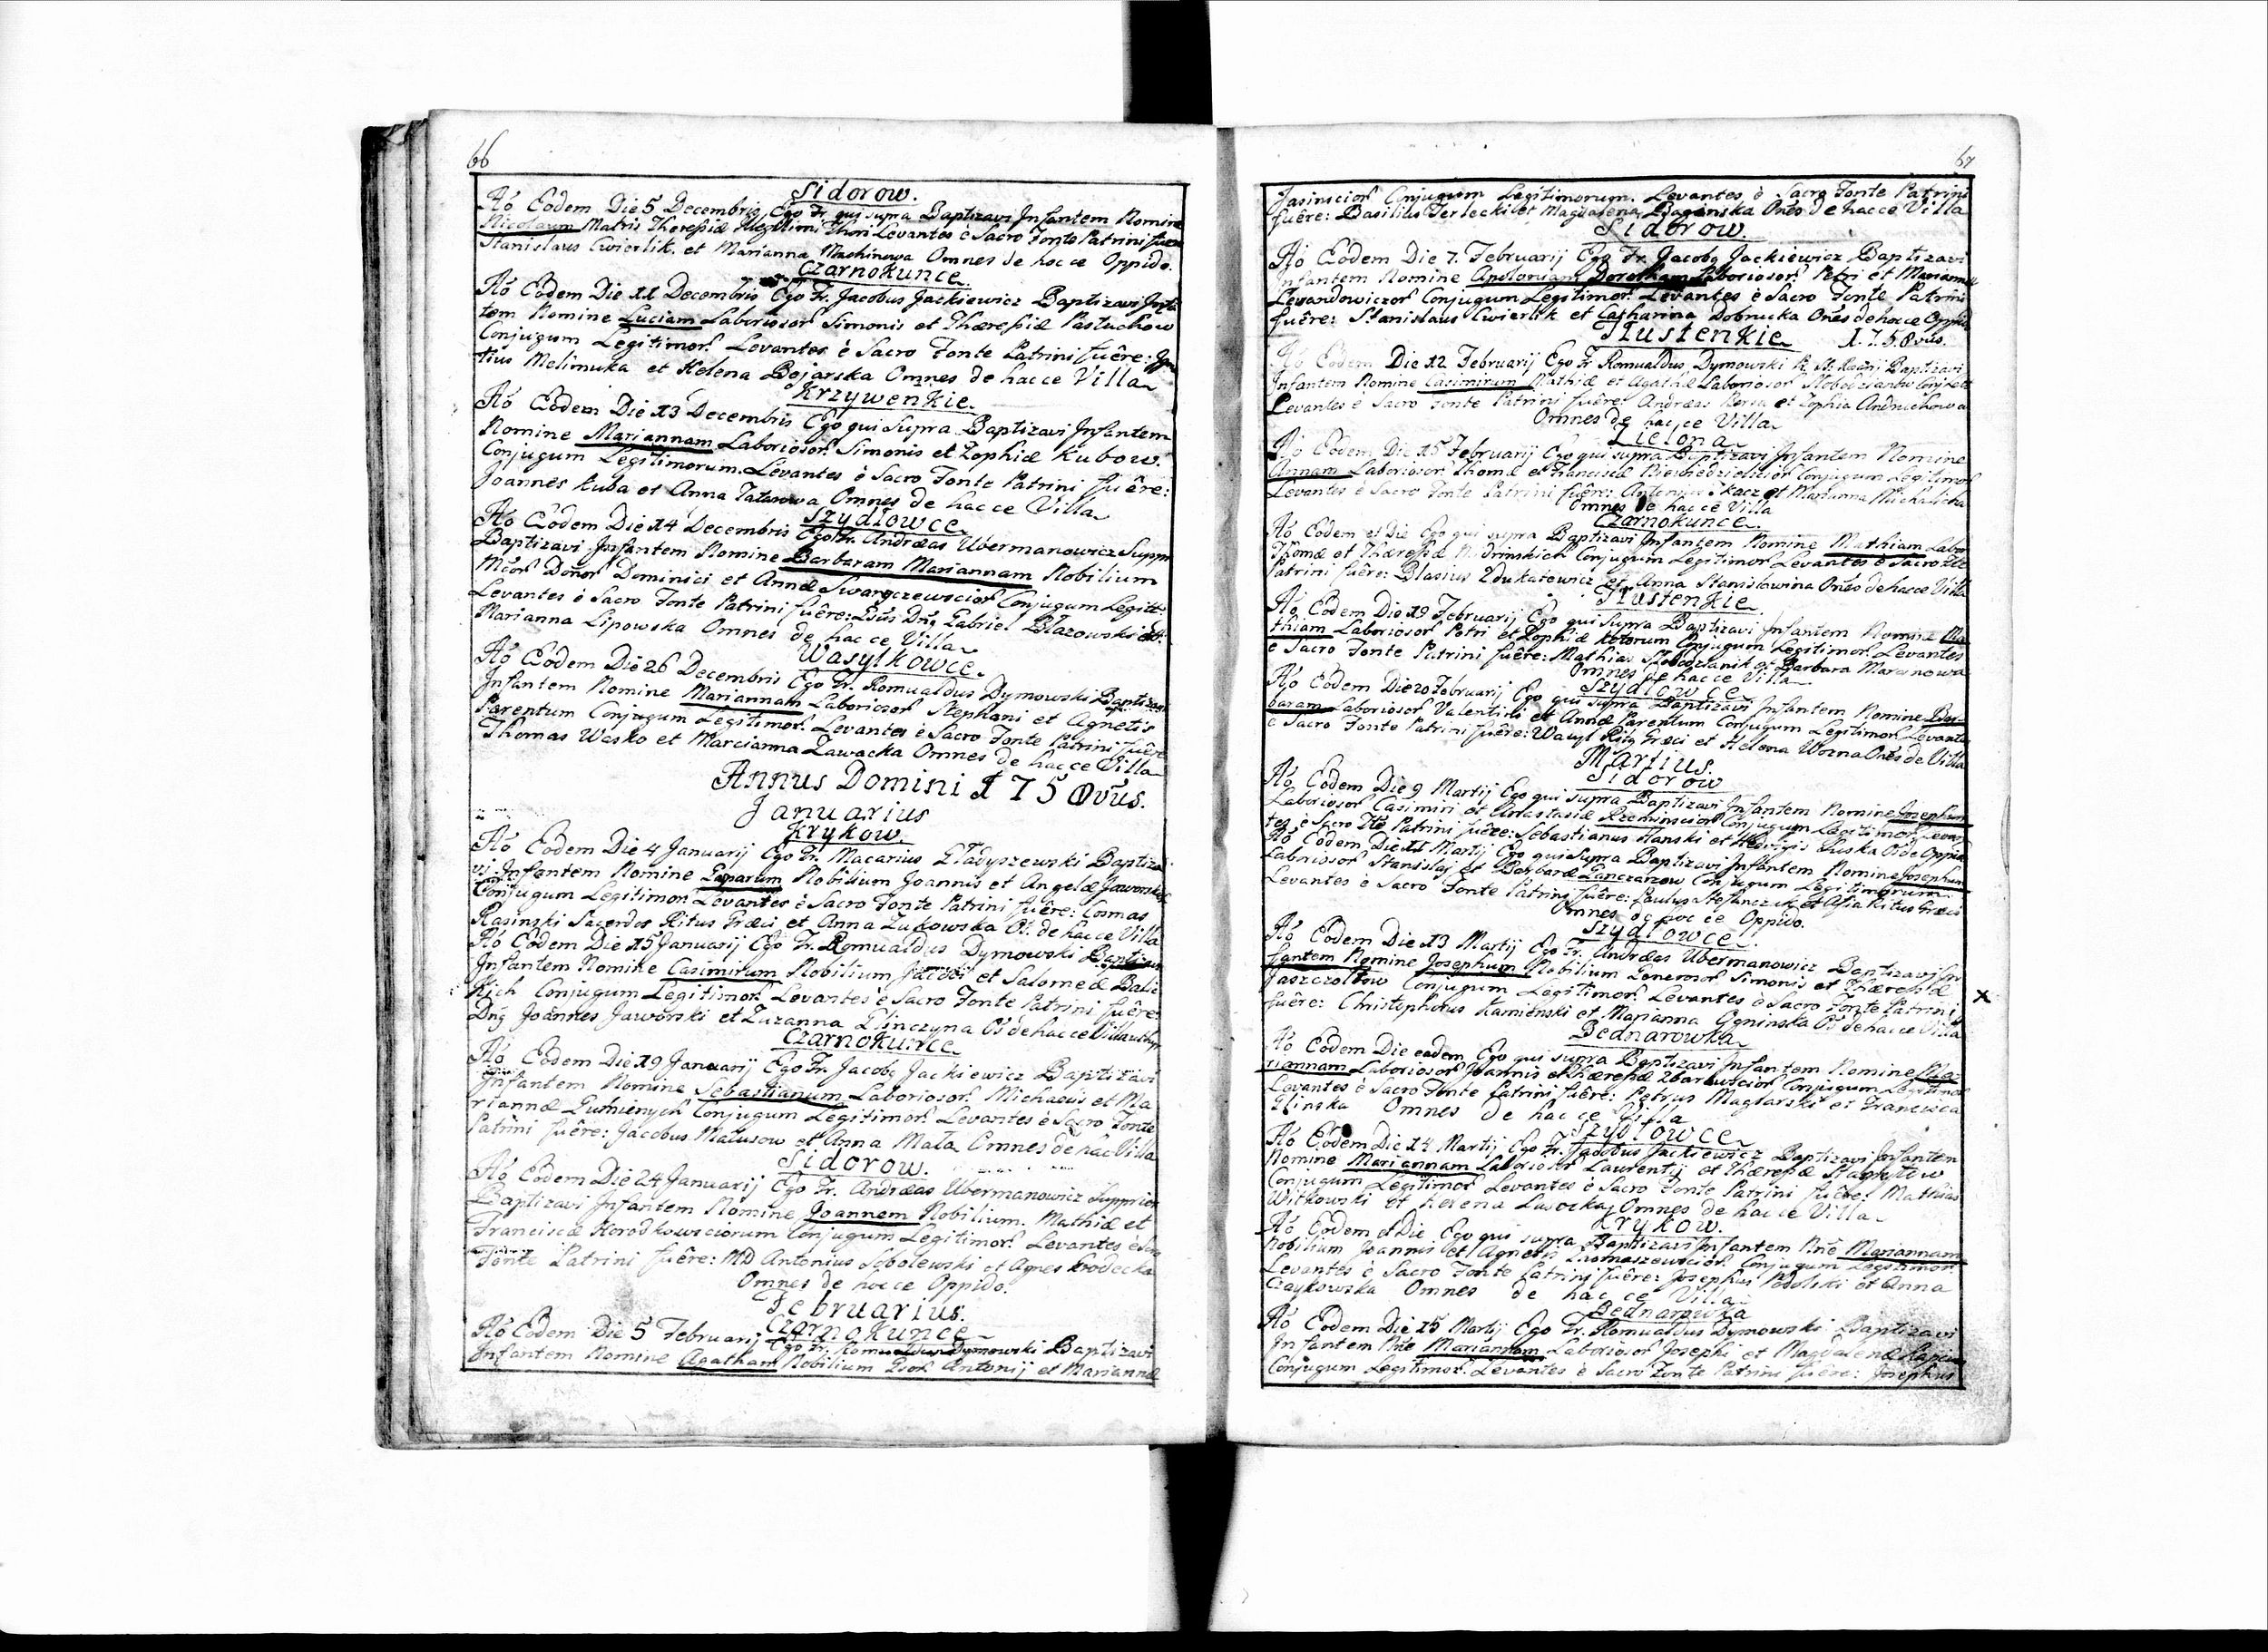 66
Sidorow.
Aó Eodem Die 5 Decembris Ego Fr. qui supra Baptizavi Infantem Nomine
Nicolaum Matris Theresiæ Thori Levantes è Sacro Fonte Patrini fuere
Stanislaus Cwierlik. et Marianna Machinowa Omnes de hac ce Oppido.
Czarnokunce
Aó Eodem Die 11 Decembris Ego Fr. Jacobus Jackiewicz Baptizavi Infan
tem Nomine Luciam Laboriosor. Simonis et Thæresiæ Pastuchow
Conjugum Legitimor. Levantes è Sacro Fonte Patrini fuêre: Igna
tius Melimuka et Helena Bojarska Omnes de hac ce Villa
Krzywenkie.
Aó Eodem Die 13 Decembris Ego qui Supra Baptizavi Infantem
Nomine Mariannam Laboriosor. Simonis et Zophiæ Kubow.
Conjugum Legitimorum. Levantes è Sacro Fonte Patrini fuêre:
Joannes Kuba et Anna Tatarowa Omnes de hac ce Villa
Szydłowce
Aó Eodem Die 14 Decembris Ego Fr. Andræas Ubermanowicz Suppr
Baptizavi Infantem Nomine Barbaram Mariannam Nobilium
Mcor Donor Dominici et Annæ Swanczewscior Conjugum Legitt
Levantes è Sacro Fonte Patrini fuêre: Gsus Dnq Gabriel Błazowski et
Marianna Lipowska Omnes de hac ce Villa
Wasylkowce.
Aó Eodem Die 26 Decembris Ego Fr. Romualdus Dymowski Baptizavi
Infantem Nomine Mariannam Laboriosor Stephani et Agnetis
Parentum Conjugum Legitimor. Levantes è Sacro Fonte Patrini fuêre
Thomas Wasko et Marcianna Zawacka Omnes de hac ce Villa
Annus Domini 1758vus.
Januarius
Krykow.
Aó Eodem Die 4 Januarij Ego Fr. Macarius Gładyszewski Baptiza
vi Infantem Nomine Gaparum Nobilium Joannis et Angelæ Jaworskich
Conjugum Legitimor Levantes è Sacro Fonte Patrini fuêre: Cosmas
Rasinski Sacerdos Ritus Græci et Anna Zukowska Os. de hac ce Villa
Aó Eodem Die 15 Januarij Ego Fr. Romualdus Dymowski Baptizavi
Infantem Nomine Casimirum Nobilium Jacobi et Salomeæ Balic
kich Conjugum Legitimor. Levantes è Sacro Fonte Patrini fuêre:
Dnq Joannes Jaworski et Zuzanna Glinczyna Os de hac ce Villa
Czarnokunce
Aó Eodem Die 19 Januarij Ego Fr. Jacobq Jackiewicz Baptizavi
Infantem Nomine Sebastianum Laboriosor. Michaelis et Ma
riannæ Gumienych Conjugum Legitimor. Levantes è Sacro Fonte
Patrini fuêre: Jacobus Małusow et Anna Mała Omnes de hac Villa
Sidorow.
Aó Eodem Die 24 Januarij Ego Fr. Andræas Ubermanowicz Supprior
Baptizavi Infantem Nomine Joannem Nobilium. Mathiæ et
Franciscæ Horodkowsciorum Conjugum Legitimor. Levantes è Sacro
Fonte Patrini fuêre: MD Antonius Sobolewski et Agnes Krodecka
Omnes de hac ce Oppido.
Februarius.
Czarnokunce
Aó Eodem Die 5 Februarij Ego Fr. Romualdus Dymowski Baptizavi
Infantem Nomine Agatham Nobilium Gsor Antonij et Mariannæ
67
Jasinscior Conjugum Legitimorum. Levantes è Sacro Fonte Patrini
fuêre: Basilius Terlecki et Magdalena Baganska Onēs de hac ce Villa
Sidorow.
Aó Eodem Die 7. Februarij Ego Fr. Jacobq Jackiewicz Baptizavi
Infantem Nomine Apoloniam Dorotheam Laboriosor. Petri et Mariannæ
Lewandowiczor Conjugum Legitimor. Levantes è Sacro Fonte Patrini
fuêre: Stanislaus Cwierlik et Catharina Dobrucka Onēs de hac ce Oppido
Tłustenkie 1.7.5.8vus.
Aó Eodem Die 12 Februarij Ego Fr Romualdus Dymowski Baptizavi
Infantem Nomine Casimirum Mathiæ et Agathæ Laboriosor Słobodzianow
Levantes è Sacro Fonte Patrini fuêre: Andræas et Zophia Andruchowa
Omnes de hac ce Villa
Zielona
Aó Eodem Die 15 Februarij Ego qui supra Baptizavi Infantem Nomine
Annam Laboriosor Thomæ et Franciscæ Conjugum Legitimor
Levantes è Sacro Fonte Patrini fuêre: Antonius Tkacz et Marianna Michalicha
Omnes de hac ce Villa
Czarnokunce.
Aó Eodem et Die Ego qui supra Baptizavi Infantem Nomine Mathiam Labor
Thomæ et Thæresiæ Conjugum Legitimor Levantes è Sacro
Patrini fuêre: Blasius Zdukatowicz et Anna Stanisławina Onēs de hac ce Villa
Tłustenkie
Aó Eodem Die 19 Februarij Ego qui Supra Baptizavi Infantem Nomine Ma
thiam Laboriosor Petri et Zophiæ Kotorum Conjugum Legitimor. Levantes
è Sacro Fonte Patrini fuêre: Mathias Słobodzianik et Barbara Marcinowa
Omnes de hac ce Villa
Szydlowce
Aó Eodem Die 20 Februarij Ego qui Supra Baptizavi Infantem Nomine Bar
baram Laboriosor Valentini et Annæ Parentum Conjugum Legitimor Levantes
è Sacro Fonte Patrini fuêre: Wasyl Ritq Græci et Helena Wozna Onēs de Villa
Martius.
Sidorow
Aó Eodem Die 9 Martij Ego qui Supra Baptizavi Infantem Nomine Josephum
Laboriosor Casimiri et Anastasiæ Conjugum Legitimor Levan
tes è Sacro Patrini fuêre: Sebastianus Hanski et Hedvigis Oś de Oppido
Aó Eodem Die 11 Martij Ego qui Supra Baptizavi Infantem Nomine Josephum
Laboriosor Stanislaj et Barbaræ Łanczanow Conjugum Legitimorum
Levantes è Sacro Fonte Patrini fuêre: Paulus Stefanczuk et Asia Ritus Græci
Omnes de hac ce Oppido.
Szydlowce.
Aó Eodem Die 13 Martij Ego Fr. Andræas Ubermanowicz Baptizavi In
fantem Nomine Josephum Nobilium Generosor Simonis et Thæresiæ
Jaszczołtow Conjugum Legitimor. Levantes è Sacro Fonte Patrini X
fuêre: Christophorus Kaminski et Marianna Ogninska Oś de hac ce Villa
Bednarowka
Aó Eodem Die eadem Ego qui supra Baptizavi Infantem Nomine Ma
riannam Laboriosor Joannis et Thæresiæ Conjugum Legitimor
Levantes è Sacro Fonte Patrini fuêre: Petrus Maglarski et Francisca
Glinska Omnes de hac ce Villa
Szydlowce
Aó Eodem Die 14 Martij Ego Fr. Jacobus Jackiewicz Baptizavi Infantem
Nomine Mariannam Laboriosor Laurentij et Thæresiæ
Conjugum Legitimor Levantes è Sacro Fonte Patrini fuêre: Mathias
Witkowski et Helena Lusocka Omnes de hac ce Villa
Krykow.
Aó Eodem et Die Ego qui supra Baptizavi Infantem Nñe Mariannam
Nobilium Joannis et Agnetis Thomaszewscior Conjugum Legitimor.
Levantes è Sacro Fonte Patrini fuêre: Josephus Podolski et Anna
Czaykowska Omnes de hac ce Villa
Bednarowka
Aó Eodem Die 15 Martij Ego Fr. Romualdus Dymowski Baptizavi
Infantem Nñe Mariannam Laboriosor Josephi et Magdalenæ
Conjugum Legitimor. Levantes è Sacro Fonte Patrini fuêre: Josephus